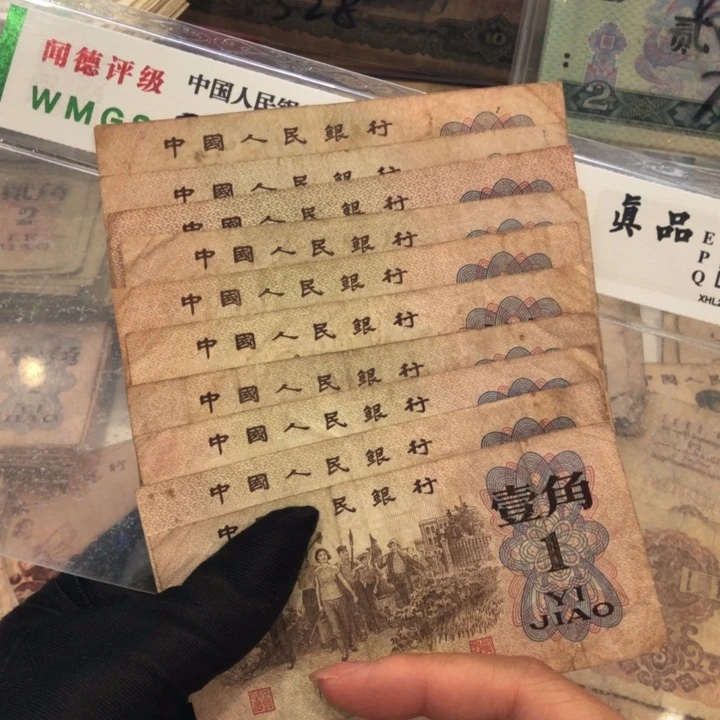 528
闻德评级
中国人民银
WMGS
贰
2
真品
E
P
Q
XHL
贰角
2
中國人民銀行
中國人民銀行
中國人民銀行
中國人民銀行
中國人民銀行
中國人民銀行
中國人民銀行
中國人民銀行
中國人民銀行
中 民銀行
壹角
1
YI
JIAO